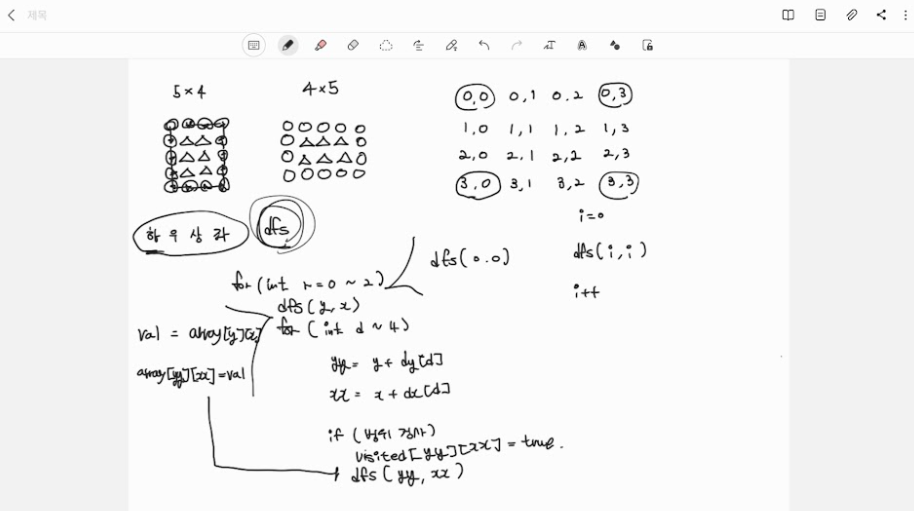 제목
5×4
4×5
0,0 0,1 0.2 0,3
1,0 1,1 1,2 1,3
2,0 2,1 2,2 2,3
3,0 3,1 3,2 3,3
하 우 상 좌
dfs
i=0
dfs(0.0)
dfs(i,i)
i++
for(int r=0 ~ 2)
dfs(y,x)
val = array[y][x]
for (int d ~ 4)
array[yy][xx]=val
yy = y + dy[d]
xx = x + dx[d]
if (범위 검사)
visited[yy][xx] = true.
dfs(yy, xx)